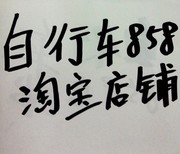 自行车858
淘宝店铺